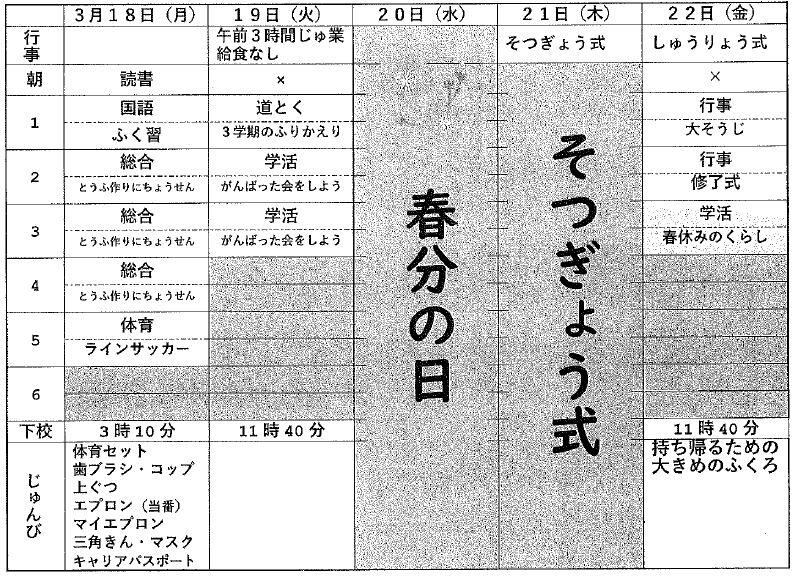 3月18日（月） 19日（火） 20日（水） 21日（木） 22日（金）
行事 午前3時間じゅ業 給食なし そつぎょう式 しゅうりょう式
朝 読書 × ×
1 国語 道とく 行事
ふく習 3学期のふりかえり 大そうじ
2 総合 学活 行事
とうふ作りにちょうせん がんばった会をしよう 修了式
3 総合 学活 学活
とうふ作りにちょうせん がんばった会をしよう 春休みのくらし
4 総合
とうふ作りにちょうせん
5 体育
ラインサッカー
6
春分の日
そつぎょう式
下校 3時10分 11時40分 11時40分
じゅんび
体育セット
歯ブラシ・コップ
上ぐつ
エプロン（当番）
マイエプロン
三角きん・マスク
キャリアパスポート
持ち帰るための
大きめのふくろ